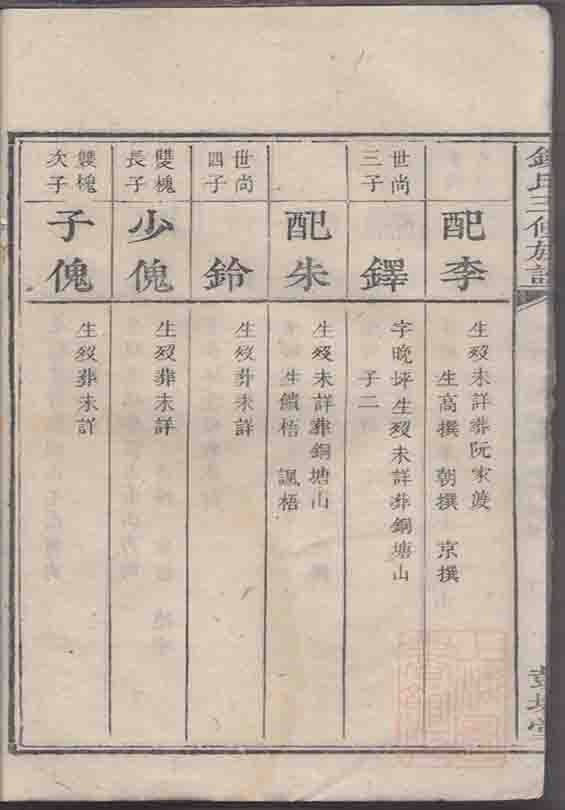 配李
生歿未詳葬阮家𡺸
生高撰 朝撰 京撰
世尚
三子
鐸
字晚坪生歿未詳葬銅塘山
子二
配朱
生歿未詳葬銅塘山
生鐀梧 諷梧
世尚
四子
鈴
生歿葬未詳
雙槐
長子
少傀
生歿葬未詳
雙槐
次子
子傀
生歿葬未詳